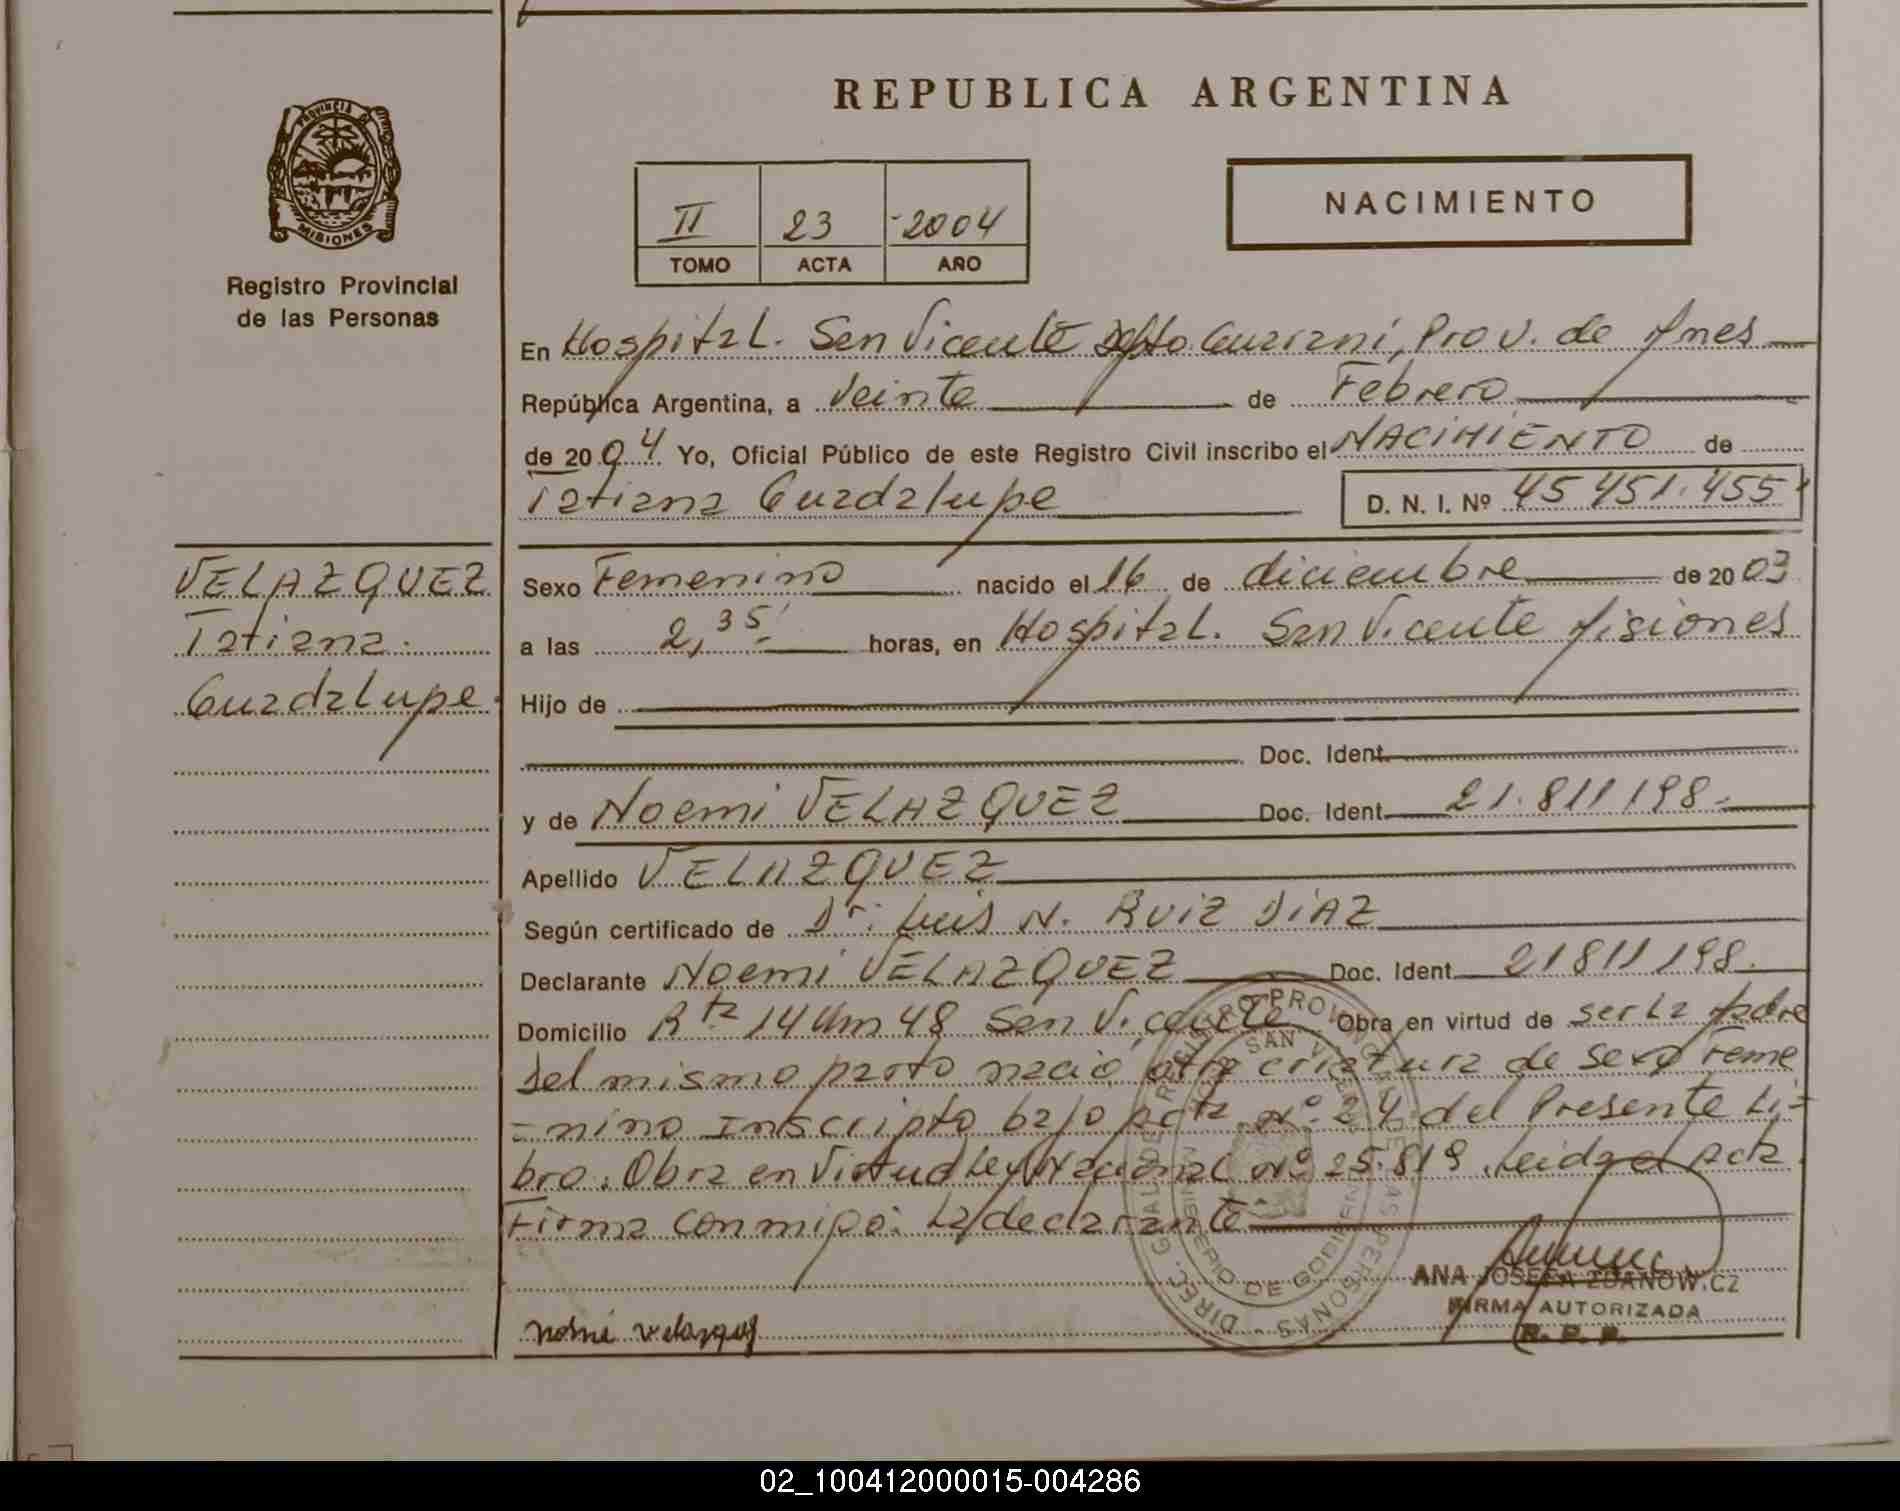 REPUBLICA ARGENTINA
PROVINCIA DE
MISIONES
Registro Provincial
de las Personas
II 23 -2004
TOMO ACTA AÑO
NACIMIENTO
En Hospital. San Vicente Dpto. Guarani, Prov. de Mnes
República Argentina, a Veinte de Febrero
de 2004 Yo, Oficial Público de este Registro Civil inscribo el NACIMIENTO de
Tatiana Guadalupe D. N. I. Nº 45 451.455
VELAZQUEZ
Tatiana.
Guadalupe
Sexo Femenino nacido el 16 de diciembre de 2003
a las 2,35 horas, en Hospital. San Vicente Misiones
Hijo de
Doc. Ident.
y de Noemi VELAZQUEZ Doc. Ident. 21.811 198.-
Apellido VELAZQUEZ
Según certificado de Dr. Luis N. RUIZ DIAZ
Declarante Noemi VELAZQUEZ Doc. Ident. 21811198.
Domicilio Rta 14 Km 48 San Vicente Obra en virtud de ser La Madre
Del mismo parto nació otra criatura de sexo Feme
=nino Inscripto bajo acta Nº 24 del Presente Li=
bro. Obra en Virtud Ley Nacional Nº 25.819. Leida el Acta
Firma conmigo: La declarante
DIREC. GRAL DE REGISTRO PROVINCIAL DE LAS PERSONAS
SAN VICENTE
DE GOBIERNO
noemi velazquez
ANA JOSEFA ZDANOWICZ
FIRMA AUTORIZADA
R. P. P.
02_100412000015-004286